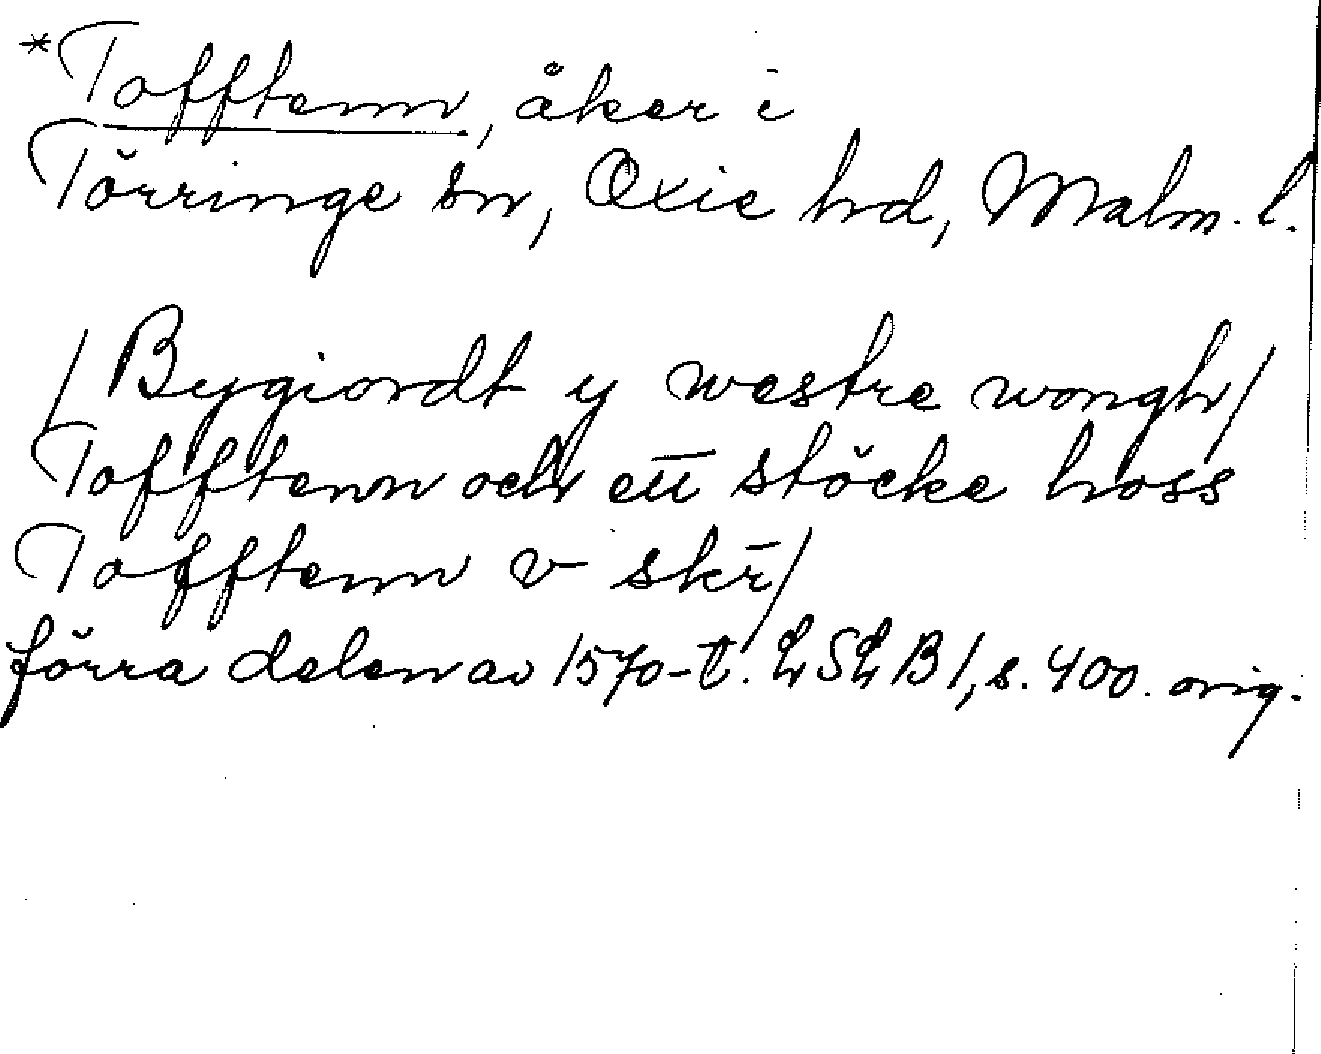 *Tofftenn, åker i
Törringe sn, Oxie hd, Malm. l.
/Bygiordt y westre wongh/
Tofftenn och ett stöcke hoss
Tofftenn v skr̄/
förra delen av 1570-t. LSLB1, s. 400. orig.